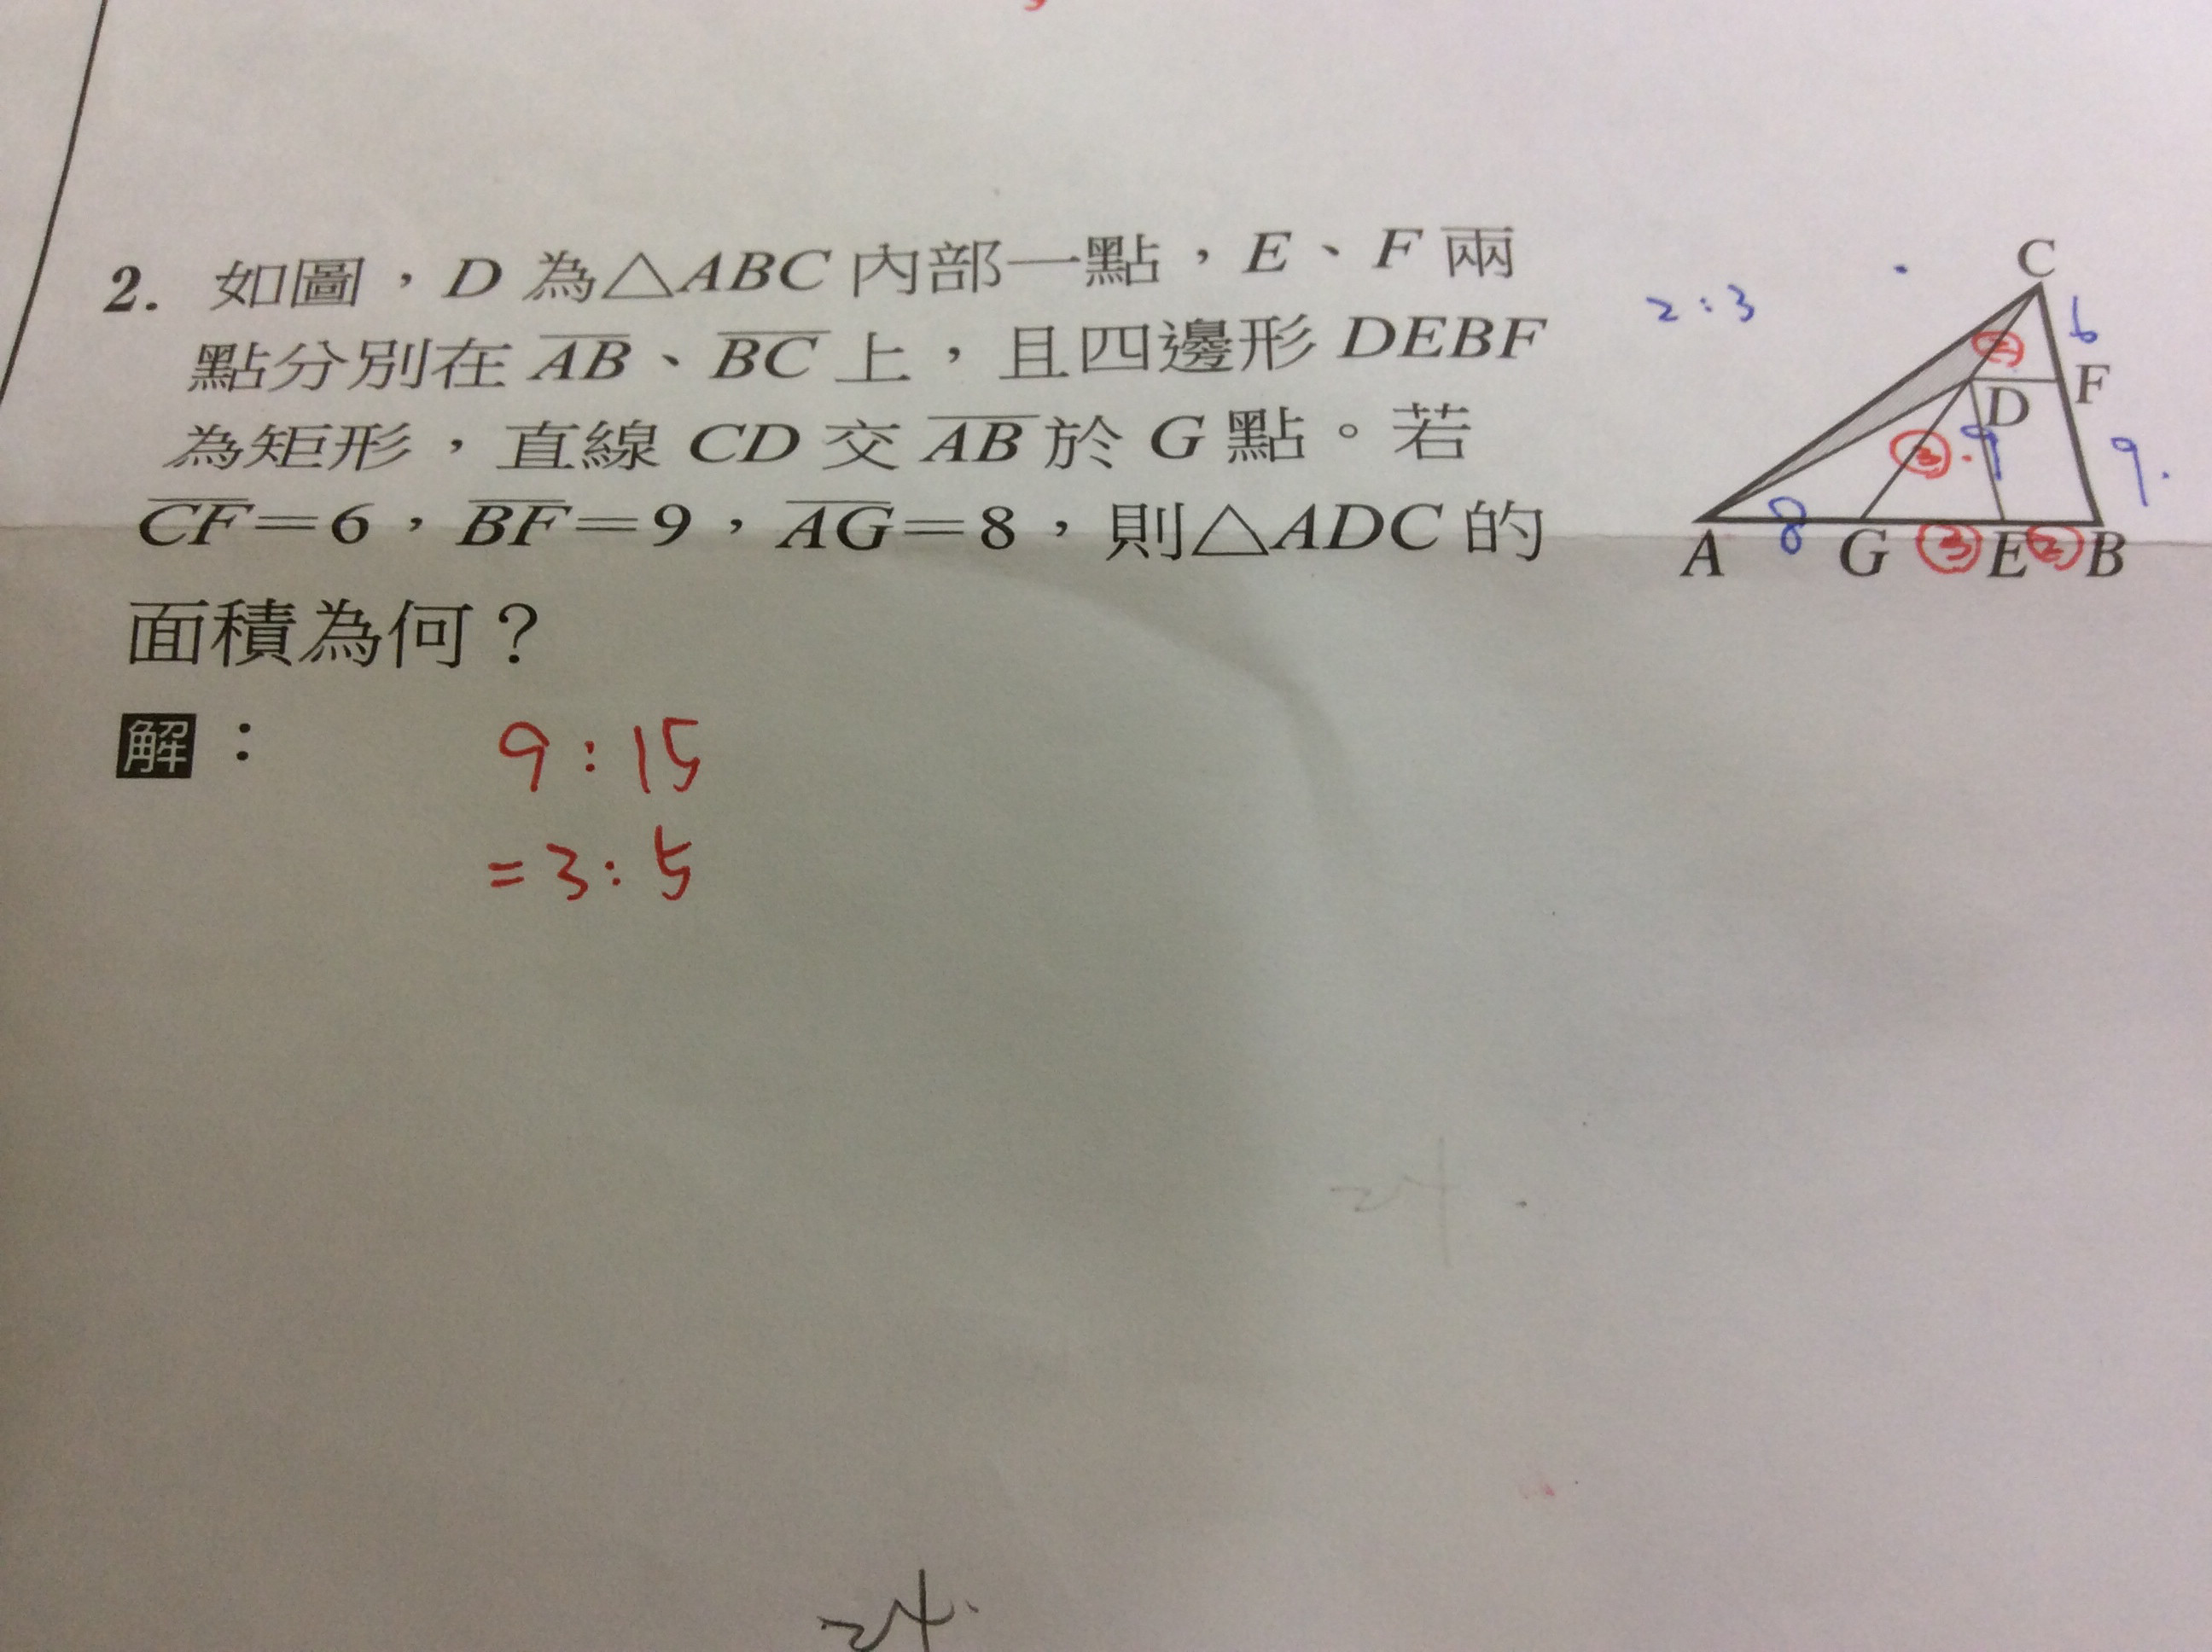 2. 如圖，D 為△ABC 內部一點，E、F 兩
點分別在 AB、BC 上，且四邊形 DEBF
為矩形，直線 CD 交 AB 於 G 點。若
CF=6，BF=9，AG=8，則△ADC 的
面積為何？
2:3
C
6
②
D
F
9
③
9.
A
8
G
③
E
②
B
解：
9:15
=3:5
24.
24.